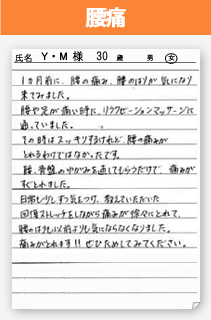 腰痛
氏名 Y・M 様 30 歳 男 女
1ヵ月前に、腰の痛み、腰のはりが気になり
来てみました。
腰や足が痛い時に、リラクゼーションマッサージに
通っていました。
その時はスッキリするけれど、腰の痛みが
とれるわけではなかったです。
腰、骨盤のゆがみを直してもらうだけで、痛みが
すぐとれました。
日常も少しずつ気をつけ、教えていただいた
回頂ストレッチをしながら痛みが徐々にとれて、
腰のはりも以前よりも気にならなくなりました。
痛みがとれます!!ぜひためしてみてください。